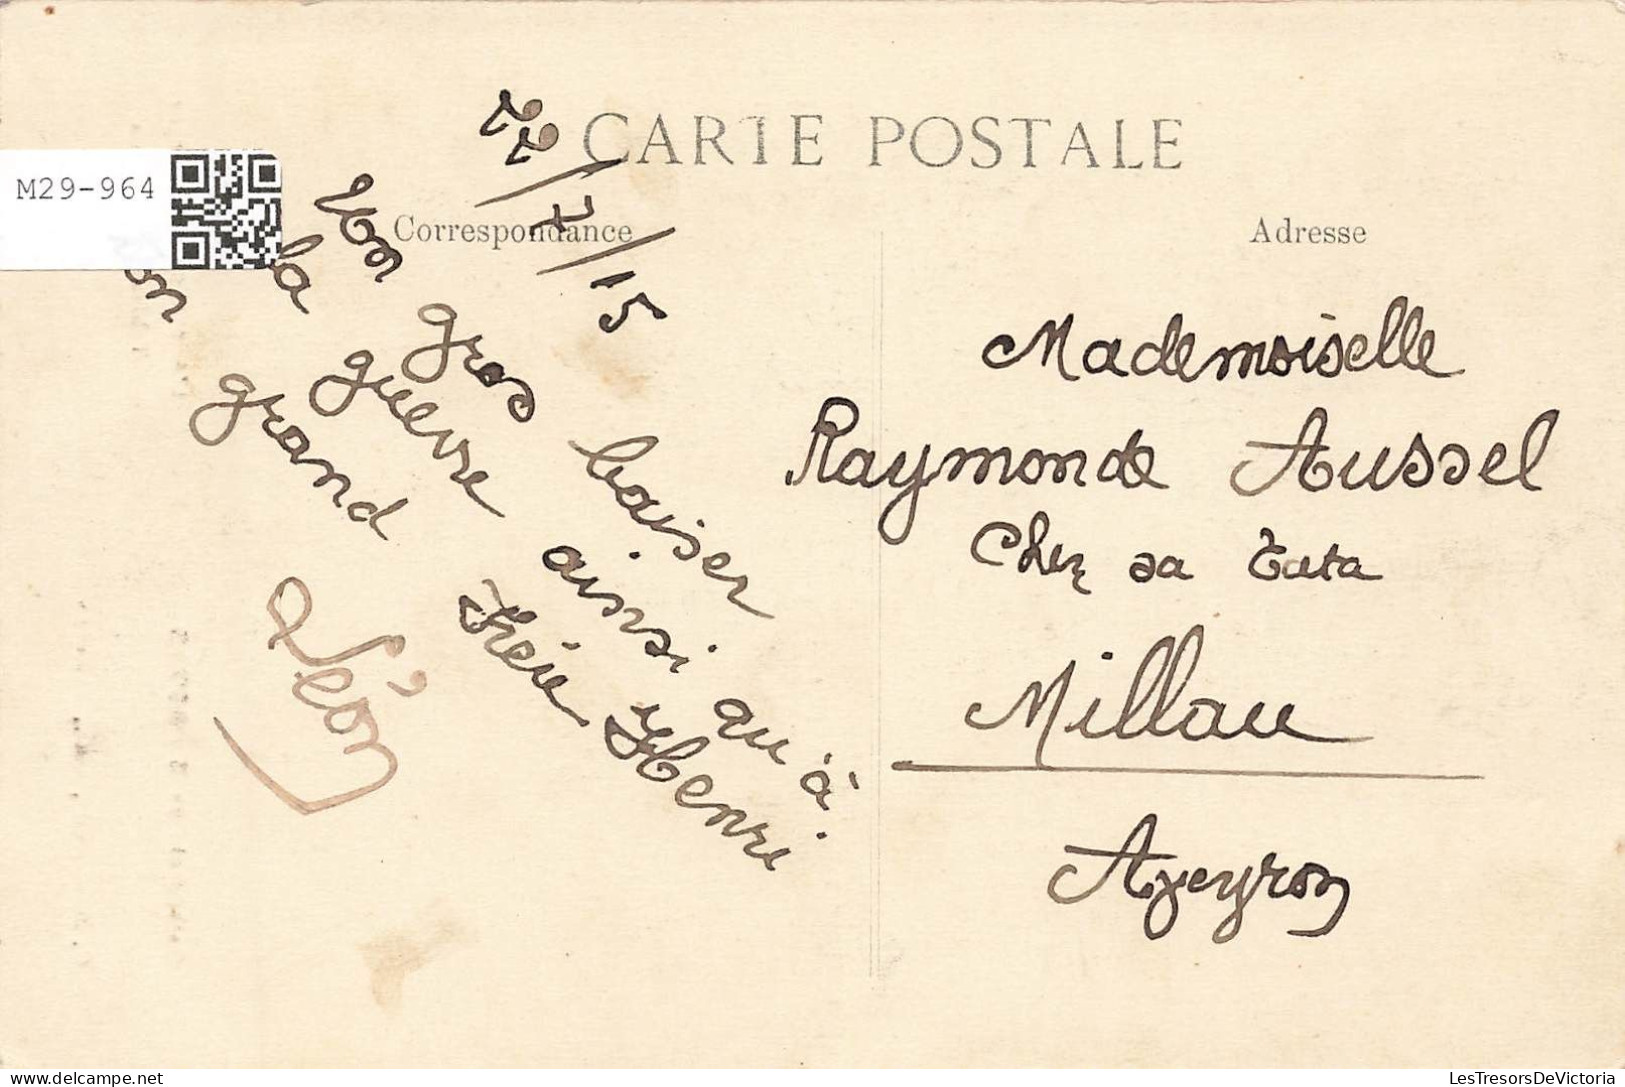 CARTE POSTALE
Correspondance
Adresse
M29-964
22/7/15
Un gros baiser
la guerre ainsi qu à
grand Frère Henri
Léon
Mademoiselle
Raymonde Aussel
Chez sa Tata
Millau
Aveyron
LesTresorsDeVictoria